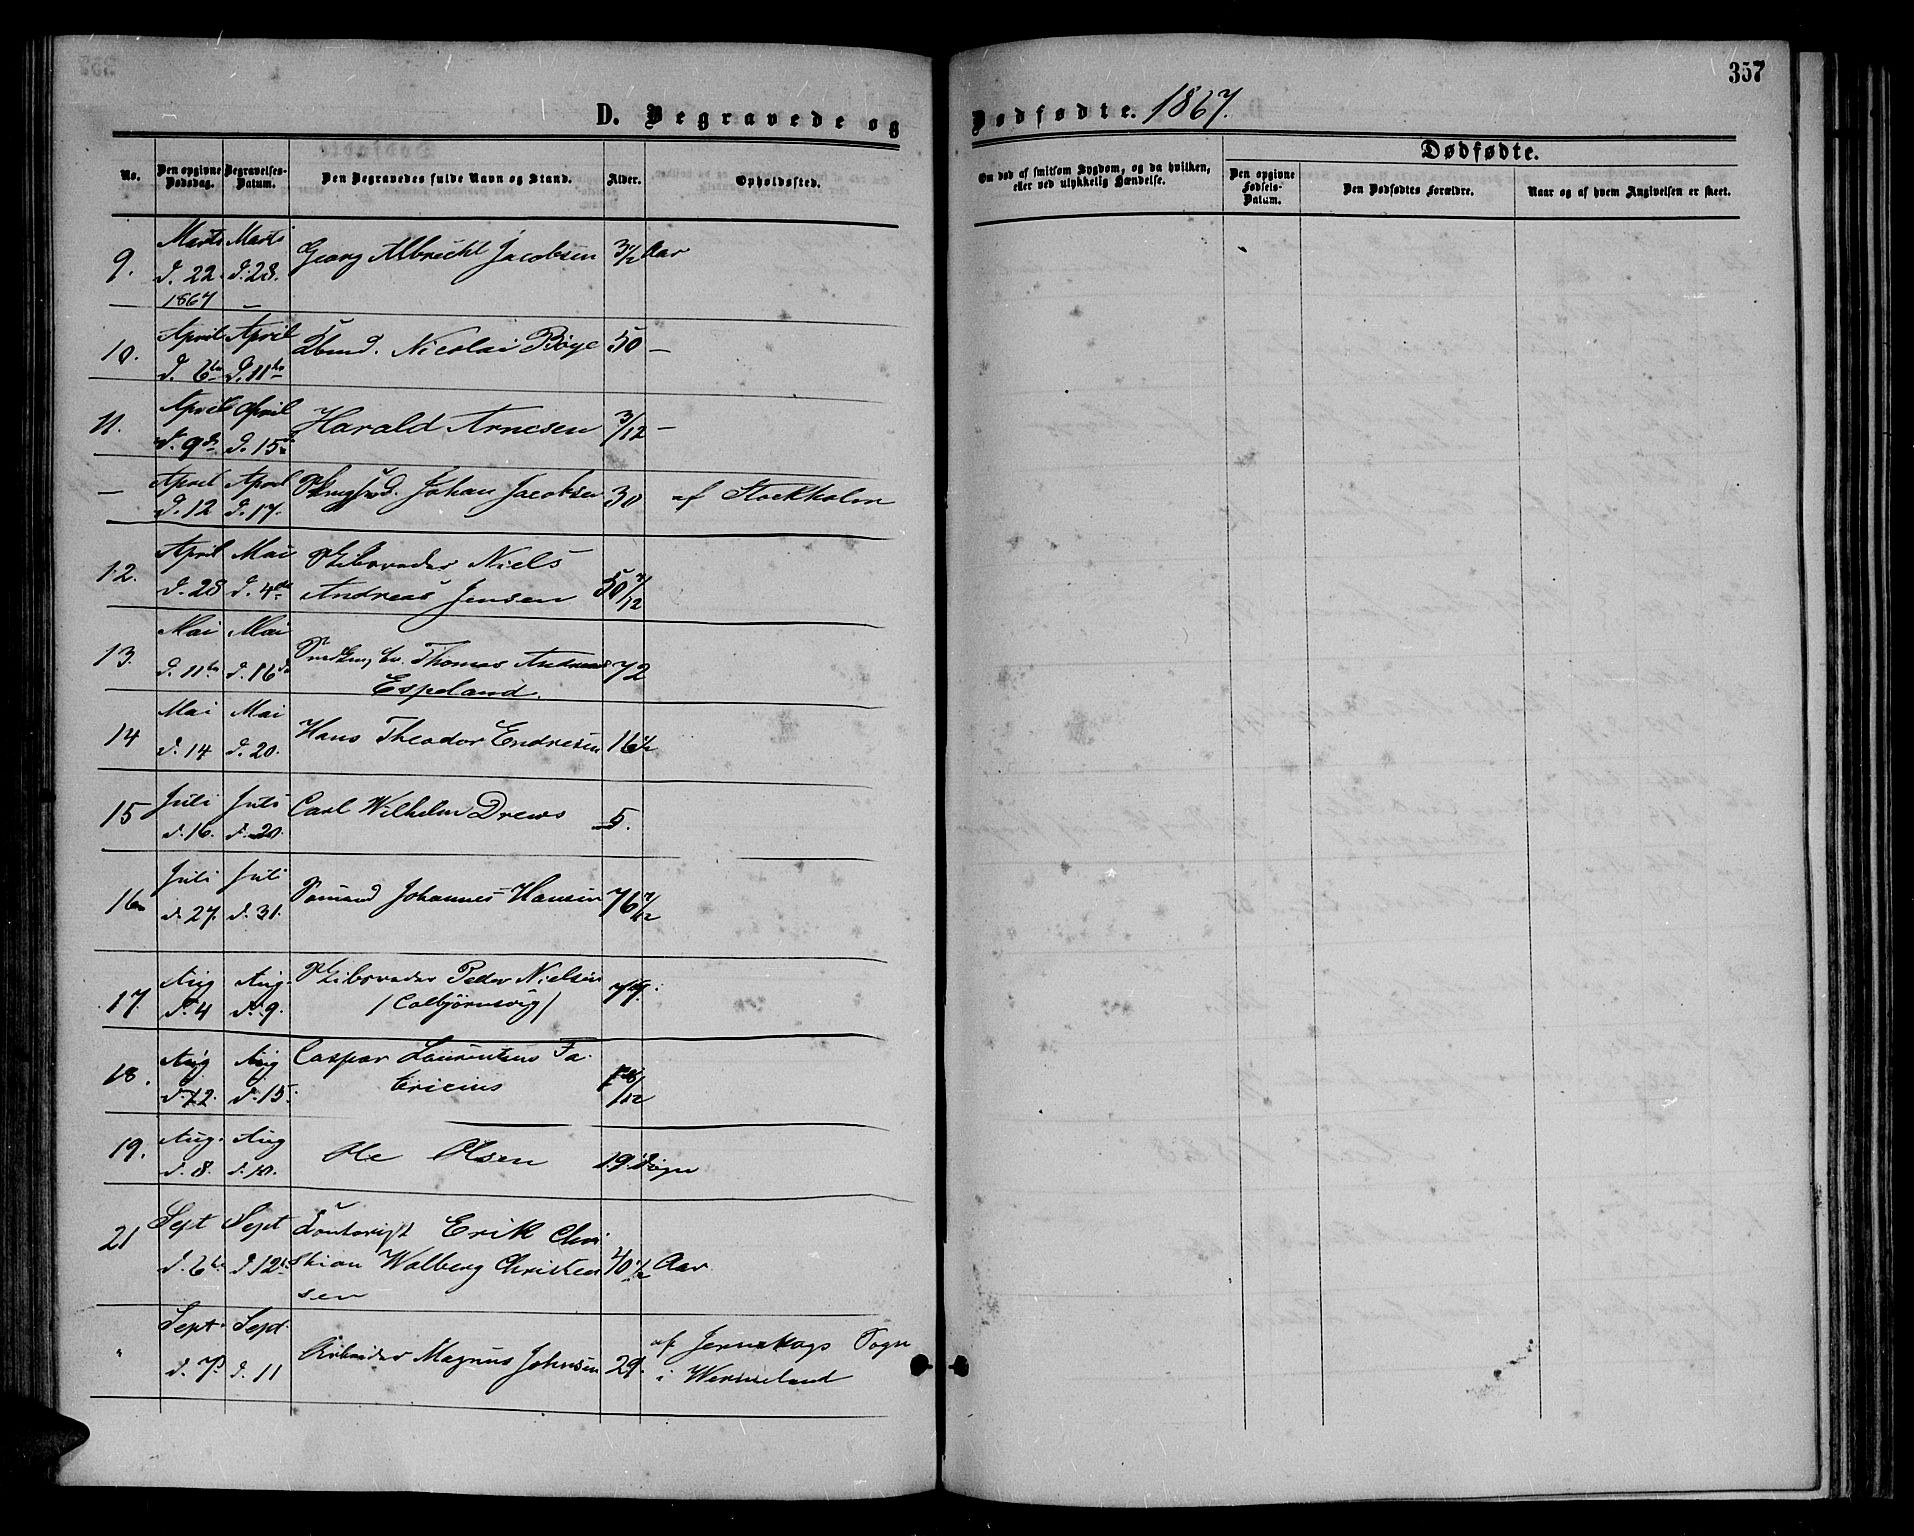 357
D. Begravede og Dødfødte. 1867.
No.
Den opgivne Dødsdag.
Begravelses-Datum.
Den Begravedes fulde Navn og Stand.
Alder.
Opholdssted.
Om død af smitsom Sygdom, og da hvilken, eller ved ulykkelig Hændelse.
Dødfødte.
Den opgivne Fødsels-Datum.
Den Dødfødtes Forældre.
Naar og af hvem Angivelsen er skeet.
Marts Marts
9. d. 22. d. 28. Georg Albrecht Jacobsen Aar
1867
April April
10. d. 6te d. 11te Nicolai Bøye 50 —
April April
11. d. 9de d. 15de Harald Arnesen 3/12 —
April April
— d. 12 d. 17. Johan Jacobsen 30 af Stockholm
April Mai
12. d. 28 d. 4de Niels
Andreas Jensen 50 7/12
Mai Mai
13. d. 11te d. 16de Thomas Andreas 72
Espeland.
Mai Mai
14 d. 14 d. 20. Hans Theodor Endresen 16 1/2
Juli Juli
15 d. 16. d. 20. Carl Wilhelm Drews 5.
Juli Juli
16 d. 27. d. 31. Sømand Johannes Hansen 76 7/12
Aug Aug.
17. d. 4 d. 9. Peder Nielsen
/Colbjørnsvig/
Aug Aug
18. d. 12. d. 15. Caspar Laurentius Fa-
bricius
Aug. Aug
19. d. 8. d. 10. Ole Olsen 19 Døgn
Sept Sept
21 d. 6te d. 12te Contorist Erik Chri-
stian Walberg Christen- 40 1/2 Aar
sen
Sept. Sept.
" d. 7de d. 11 Arbeider Magnus Johnsen 29. af Jernskogs Sogn
i Wermeland